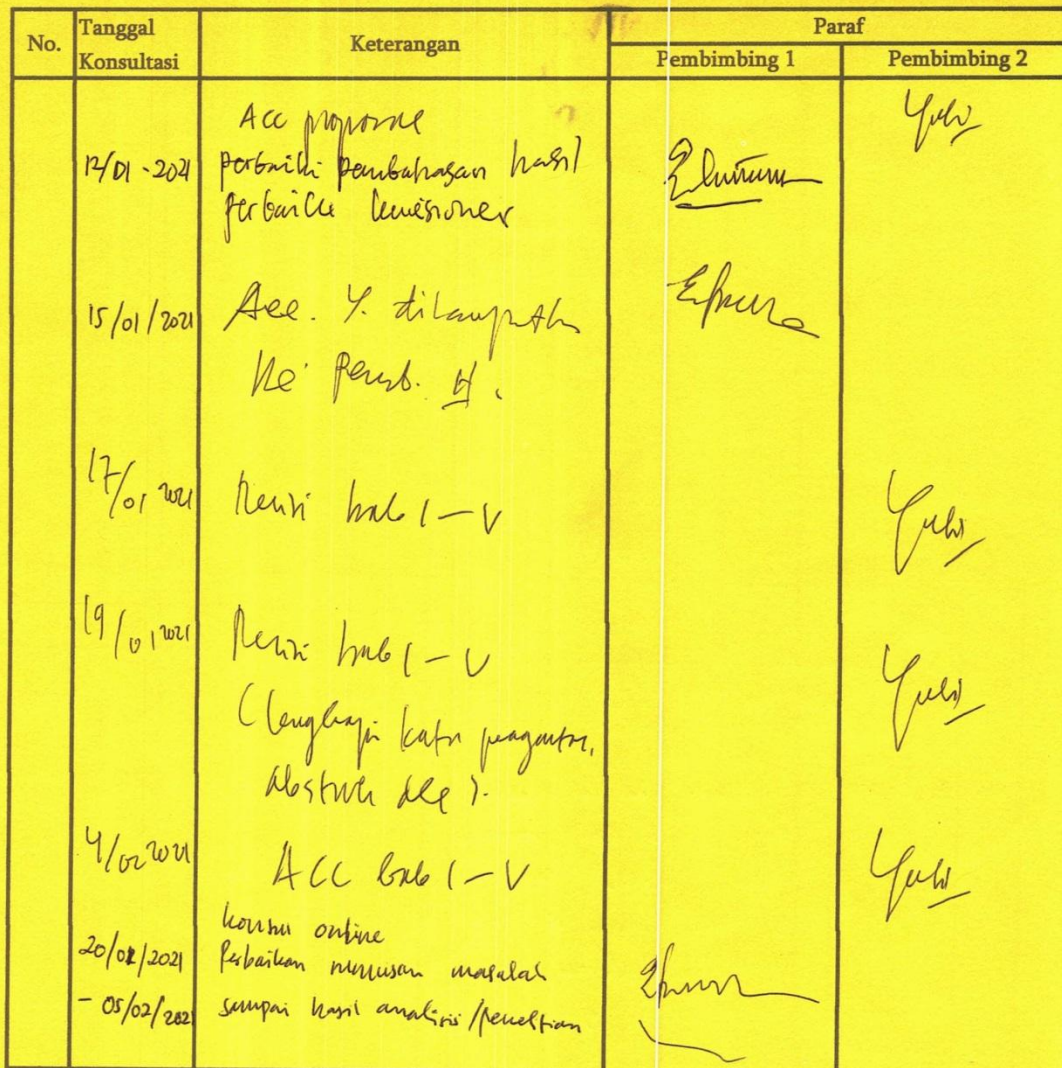 No. Tanggal Konsultasi Keterangan Paraf
Pembimbing 1 Pembimbing 2
Acc proposal
12/01-2021 perbaiki pembahasan hasil
perbaiki kuesioner
15/01/2021 Acc. Y. dilanjutkan
ke Pemb. II.
17/01 2021 Revisi bab I-V
19/01 2021 Revisi bab I-V
(lengkapi kata pengantar,
abstrak dll).
4/02 2021 ACC bab I-V
konsul online
20/01/2021 Perbaikan rumusan masalah
- 05/02/2021 sampai hasil analisis/penelitian